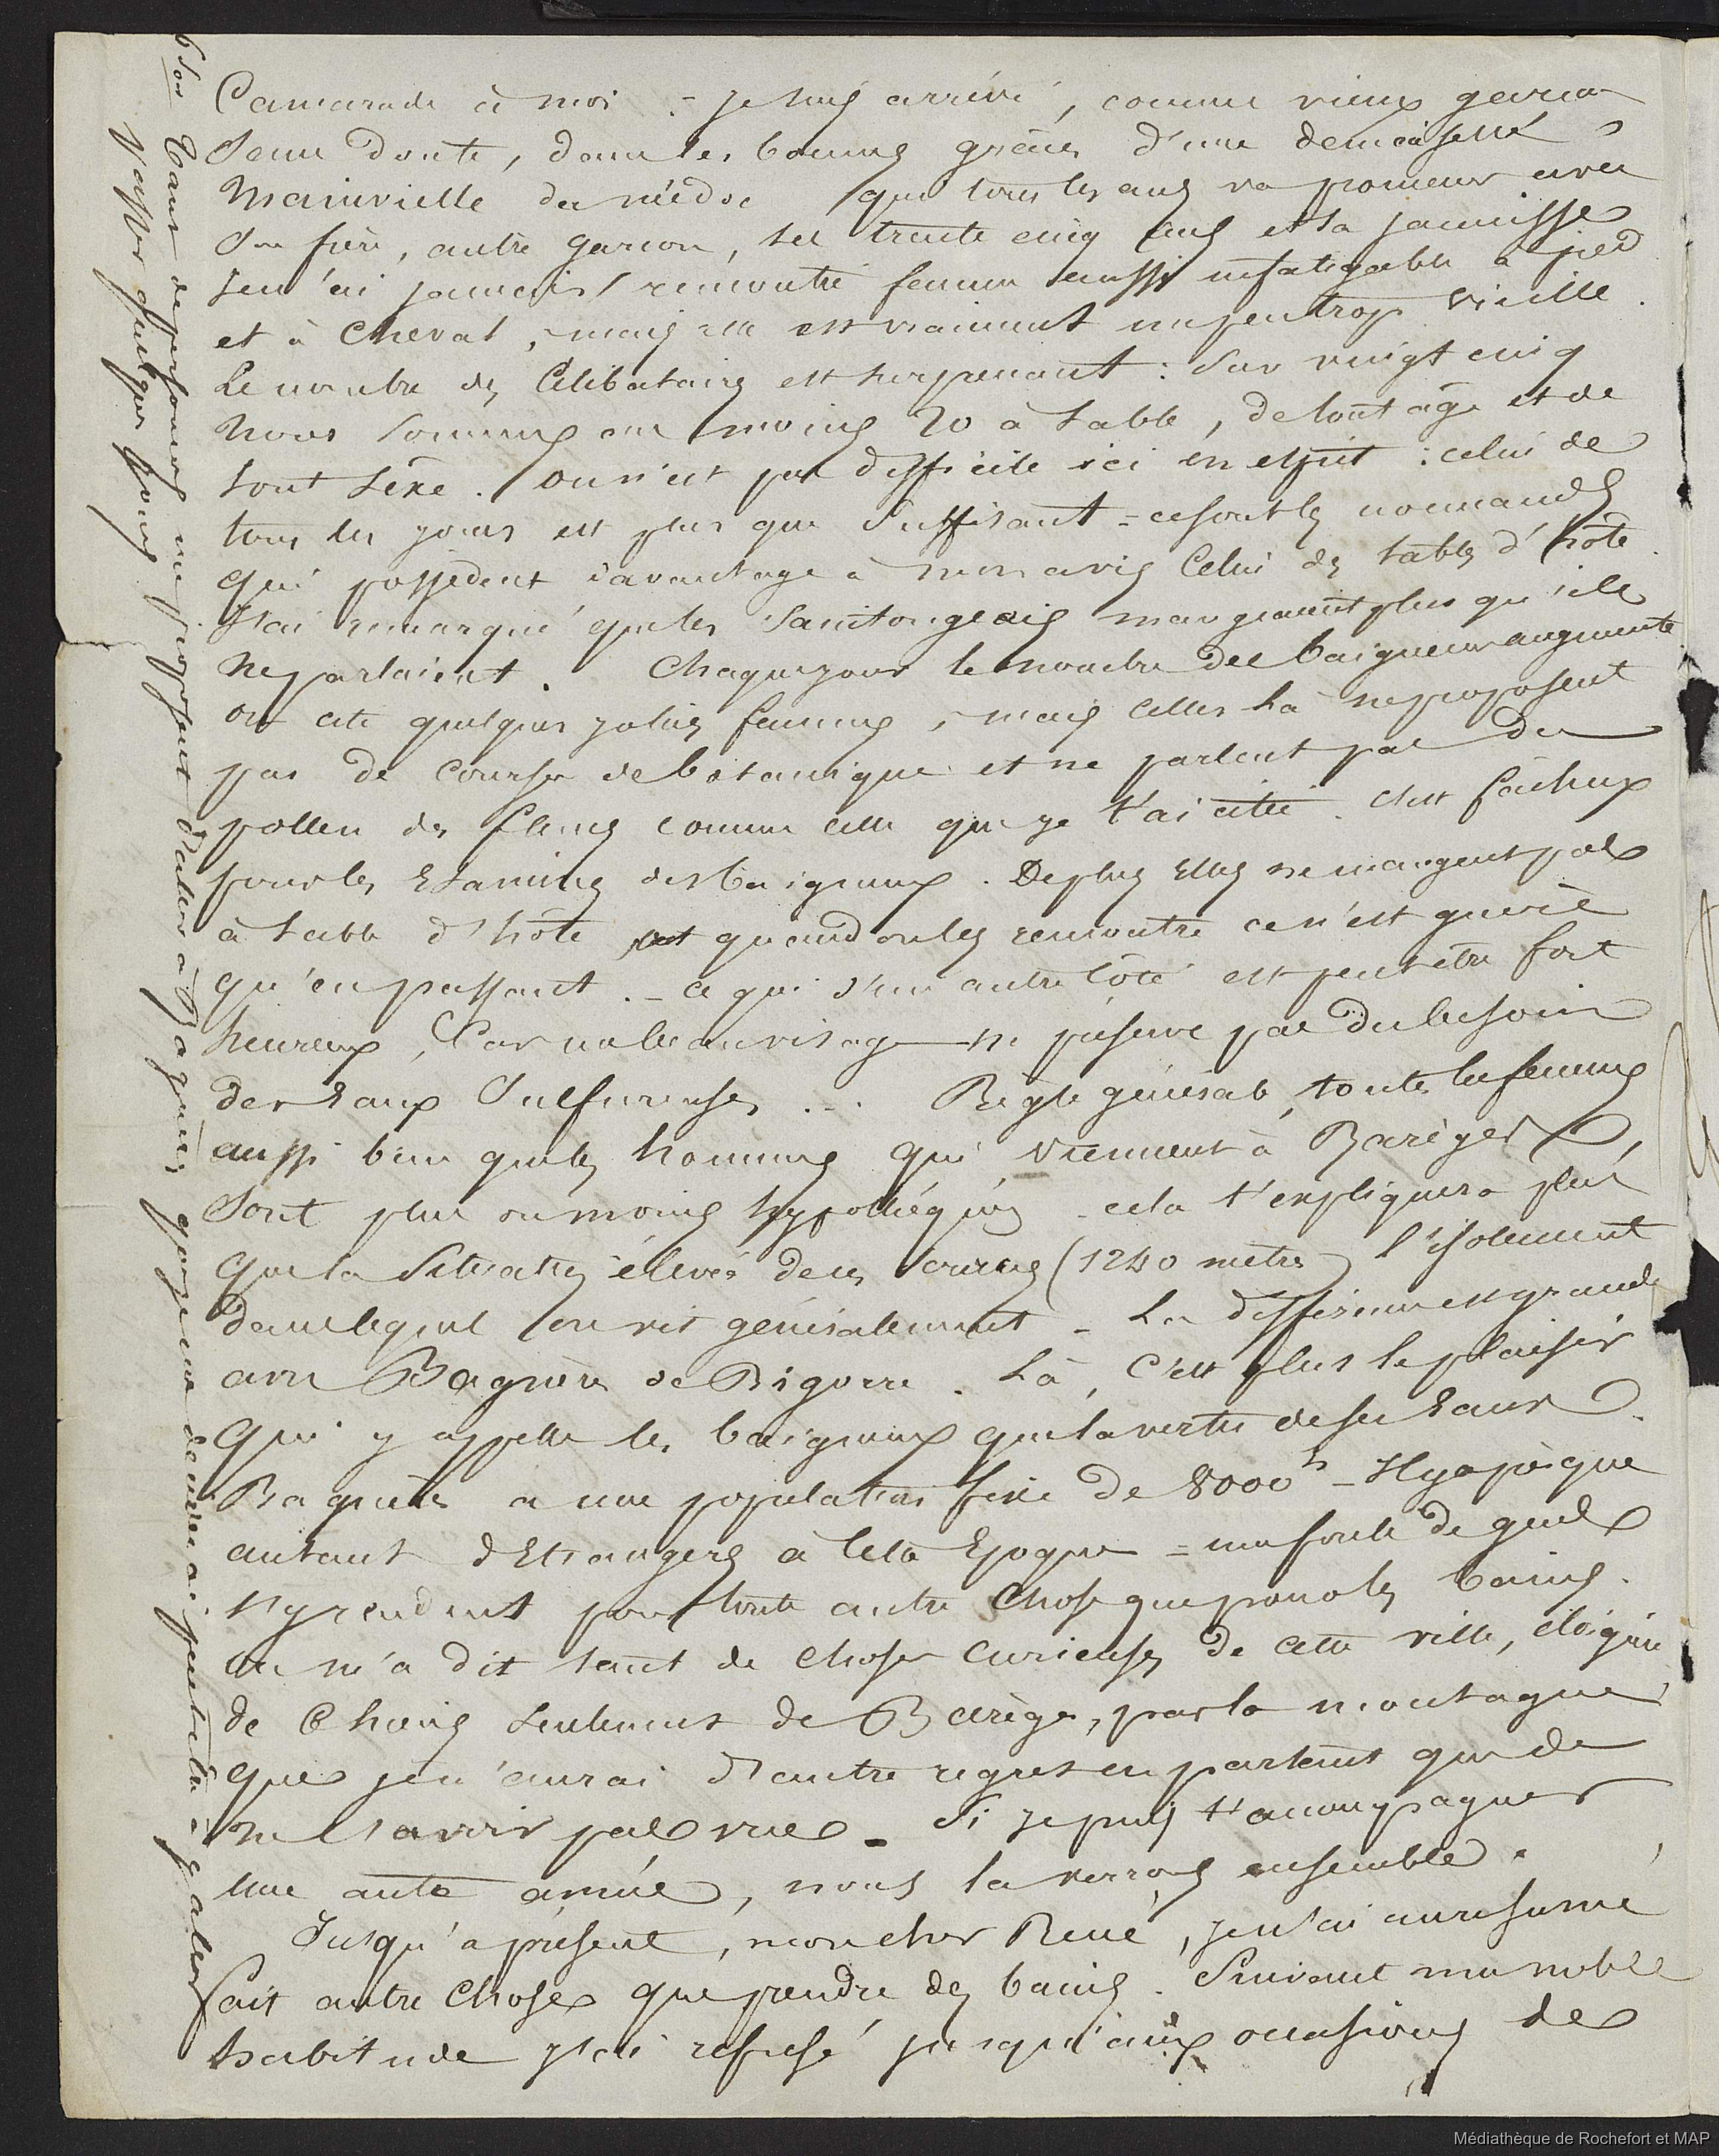 Camarade à moi = je suis arrivé, comme vieux garçon
sans doute, dans les bonnes grâces d'une demoiselle
Mainvielle du médoc que tous les ans va promener avec
son frère, autre garçon, ses trente cinq ans et sa jaunisse
je n'ai jamais rencontré femme aussi infatigable à pied
et à cheval, mais elle est vraiment un peu trop vieille.
Le nombre des Célibataires est surprenant : sur vingt cinq
nous sommes au moins 20 à table, de tout âge et de
tout sèxe. on n'est pas difficile ici en esprit : celui de
tous les jours est plus que suffisant = ce sont les normands
qui possèdent davantage à mon avis celui des tables d'hôte.
J'ai remarqué que les Saintongeais mangeaient plus qu'ils
ne parlaient. Chaque jour le nombre des baigneurs augmente
on cite quelques jolies femmes, mais celles là ne proposent
pas de courses de botanique et ne parlent pas du
pollen des fleurs comme celle que je t'ai citée. C'est fâcheux
pour les Etamines des baigneurs. De plus Elles ne mangent pas
à table d'hôte et quand on les rencontre ce n'est guère
qu'en passant. - ce qui d'un autre côté est peut être fort
heureux, Car un beau visage ne préserve pas du besoin
des Eaux Sulfureuses ... Règle générale, toutes les femmes
aussi bien que les hommes qui viennent à Barèges,
sont plus ou moins hypothéqués - cela t'expliquera plus
que la Situation élevée de ces bains (1240 mètres) l'isolement
dans lequel on vit généralement - La différence est grande
avec Bagnères de Bigorre. Là, C'est plus le plaisir
qui y appelle les baigneurs que la vertu de ses Eaux.
Bagnères a une population fixe de 8000 h - Il y a presque
autant d'Etrangers à cette Epoque = une foule de gens
s'y rendent pour toute autre chose que pour les bains.
on m'a dit tant de choses curieuses de cette ville, éloignée
de 6 heures seulement de Barèges, par la montagne
que je n'aurai d'autre regret en partant que de
ne l'avoir pas vue - Si je puis t'accompagner
une autre année, nous la verrons ensemble.
Jusqu'à présent, mon cher René, je n'ai en résumé
fait autre chose que prendre des bains. Suivant ma noble
habitude j'ai refusé jusqu'aux occasions de
Tant de personnes me proposent d'aller à Bagnères que je me déciderai peut être à y aller
passer quelques jours